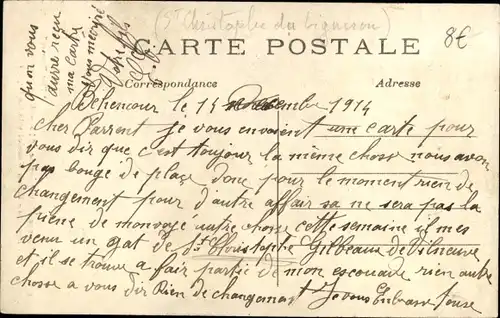 (St Christophe du Ligneron)
8€
CARTE POSTALE
Correspondance
Adresse
qu'on vous
ma carte
Behencour le 15 1914
cher Parront je vous envoient une carte pour
vous dir que c'est toujour la même chose nous avon
pas bougé de place donc pour le moment rien de
changement pour d'autre affair sa ne sera pas la
piene de monvoyé autre chose cette semaine il mes
venu un gat de St Christophe Gilbeaux de Vilneuve
et il se trouve a fair partie de mon escouade rien autre
chose a vous dir Rien de changemant Je vous Enbrasse touse